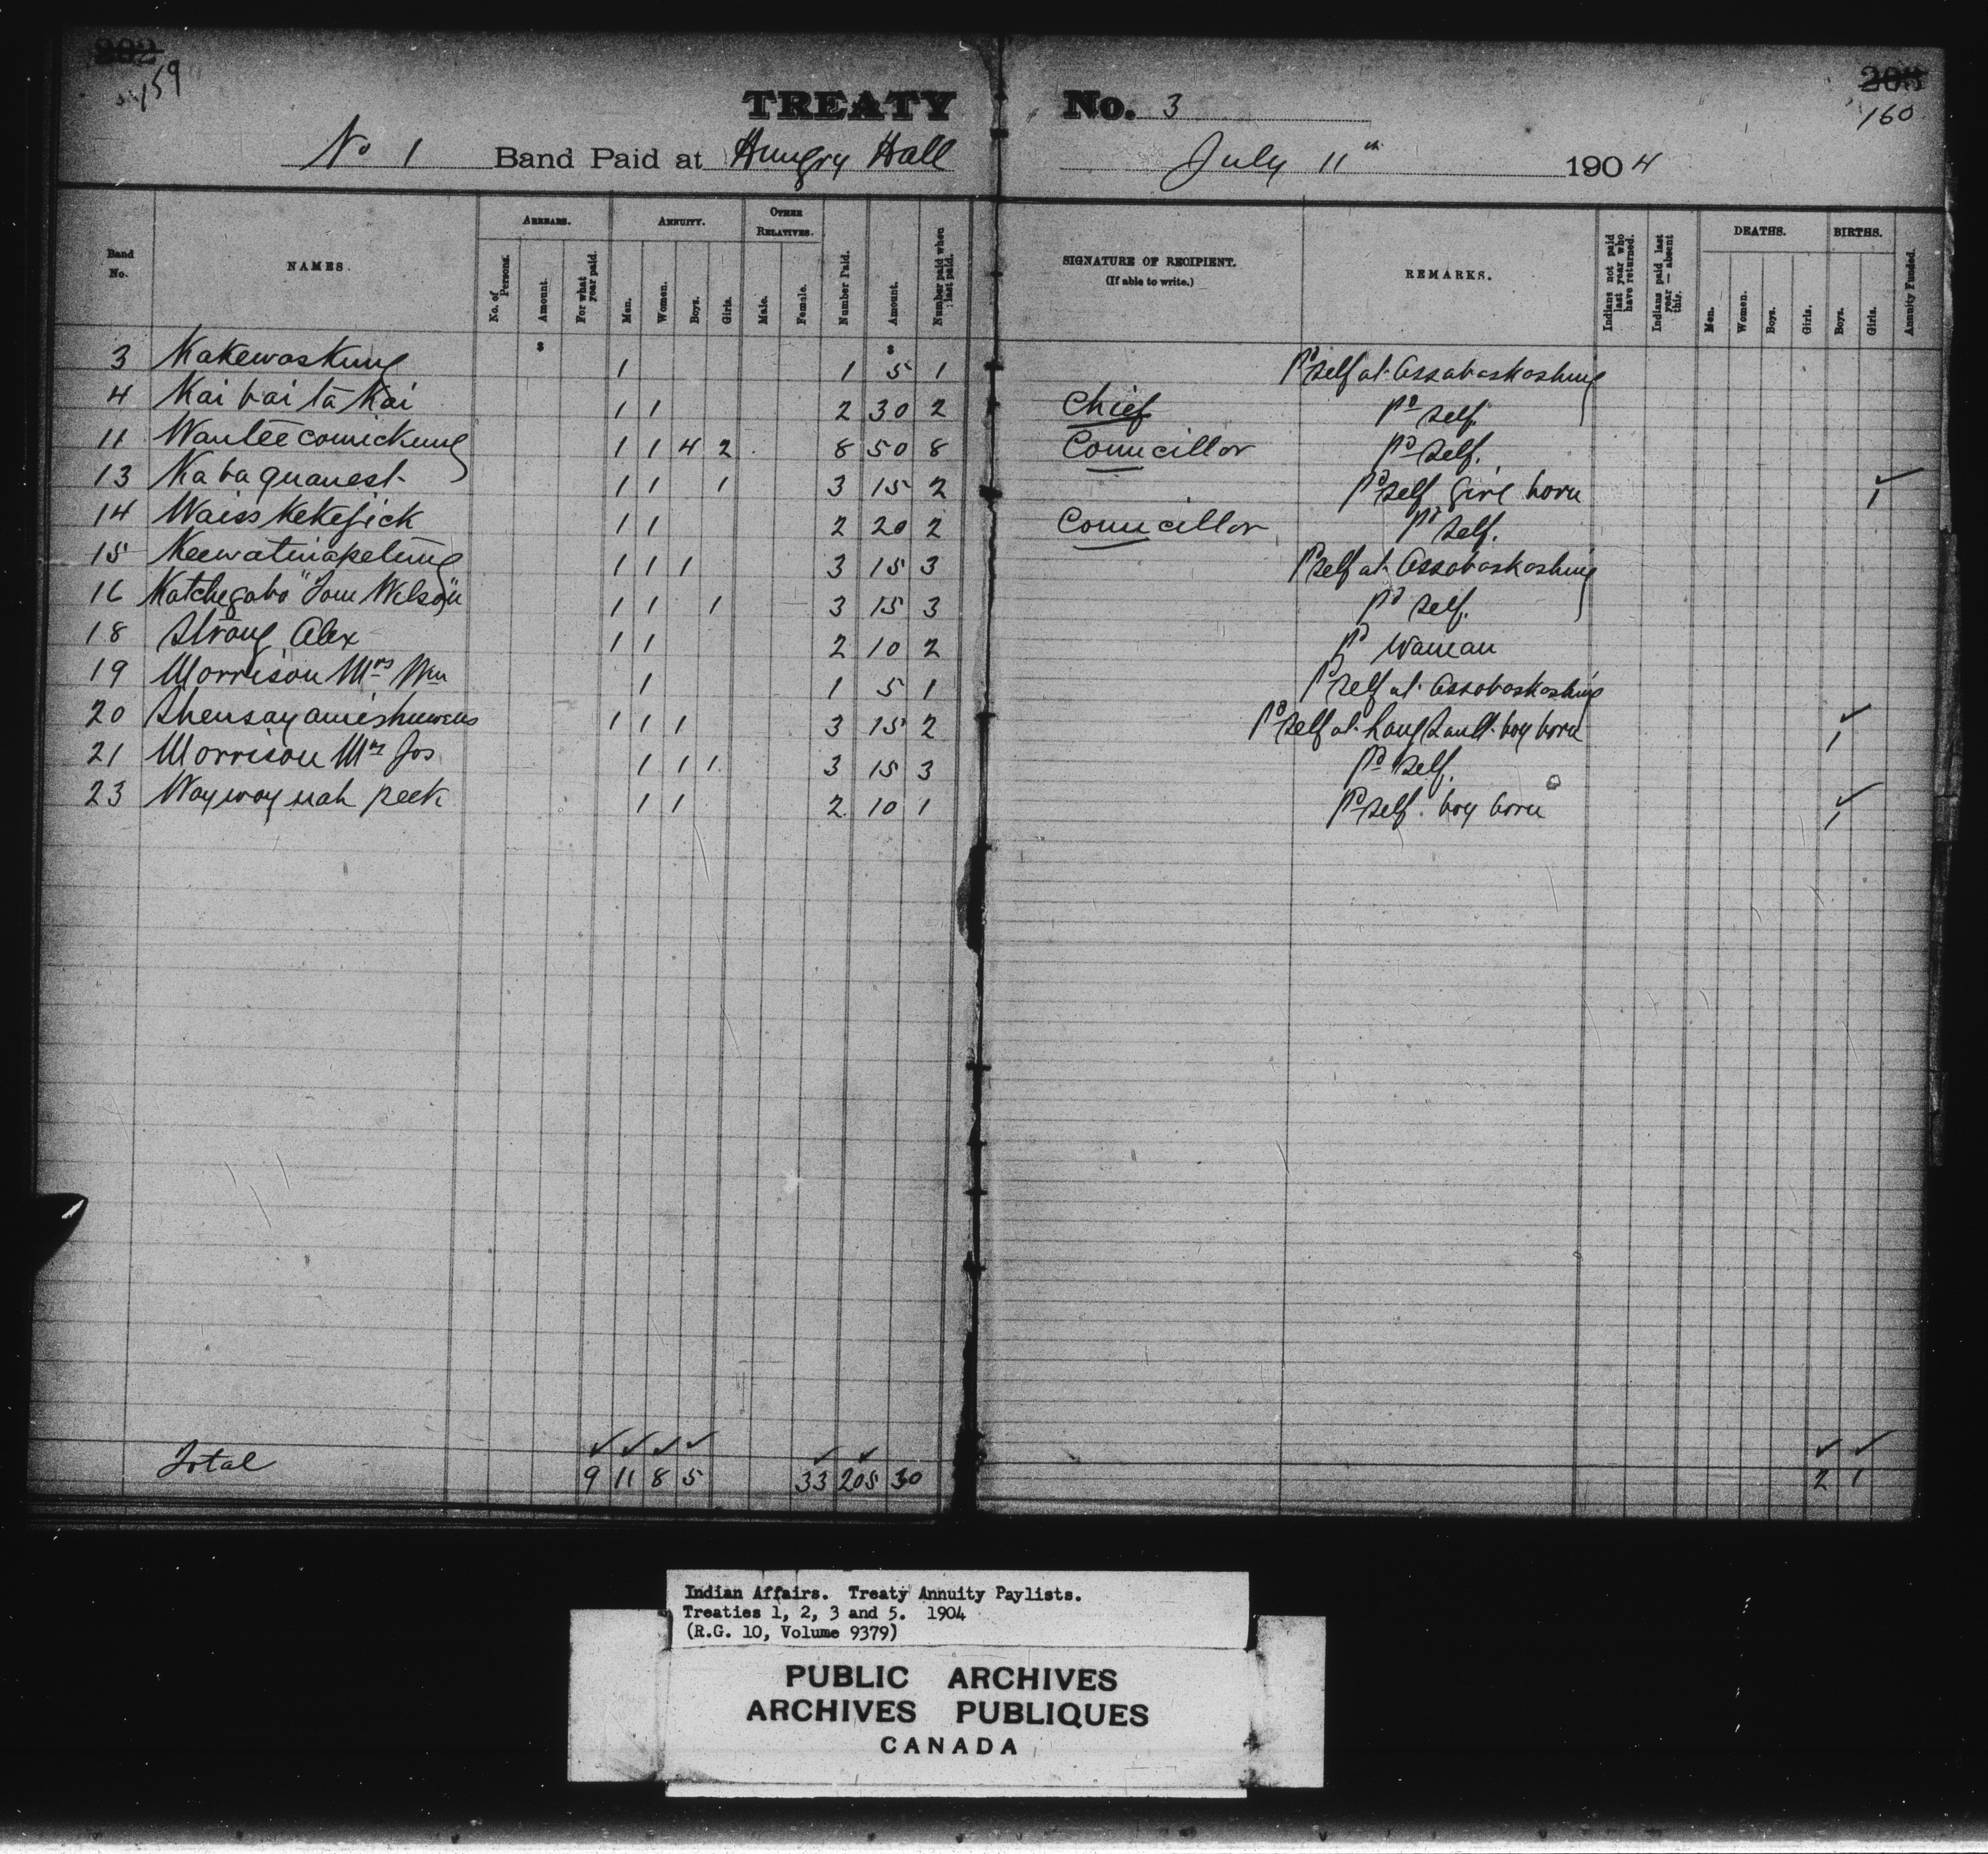 202 203
159 160
TREATY No. 3
No 1 Band Paid at Hungry Hall July 11th 1904
Band No. NAMES. ARREARS. No. of Persons. Amount. For what year paid. ANNUITY. Men. Women. Boys. Girls. OTHER RELATIVES. Male. Female. Number Paid. Amount. Number paid when last paid. SIGNATURE OF RECIPIENT. (If able to write.) REMARKS. Indians not paid last year who have returned. Indians paid last year — absent this. DEATHS. Men. Women. Boys. Girls. BIRTHS. Boys. Girls. Annuity Funded.
$ $
3 Kakewaskung 1 1 5 1 Pd self at Assabaskashing
4 Kai bai ta Kai 1 1 2 30 2 Chief Pd self.
11 Wantee comickung 1 1 4 2 8 50 8 Councillor Pd self.
13 Ka ba quanest 1 1 1 3 15 2 Pd self Girl born ✓ 1
14 Waiss kekejick 1 1 2 20 2 Councillor Pd self.
15 Keewatinapetung 1 1 1 3 15 3 Pd self at Assabaskashing
16 Katchegabo "Tom Wilson" 1 1 1 3 15 3 Pd self.
18 Strong Alex 1 1 2 10 2 Pd Waman
19 Morrison Mrs Wm 1 1 5 1 Pd self at Assabaskashing
20 Shensayamishuwens 1 1 1 3 15 2 Pd self at Long Sault boy born ✓ 1
21 Morrison Mrs Jos 1 1 1 3 15 3 Pd self.
23 Way way nah peek 1 1 2 10 1 Pd self. boy born ✓ 1
✓ ✓ ✓ ✓ ✓ ✓ ✓ ✓
Total 9 11 8 5 33 205 30 2 1
Indian Affairs. Treaty Annuity Paylists.
Treaties 1, 2, 3 and 5. 1904
(R.G. 10, Volume 9379)
PUBLIC ARCHIVES
ARCHIVES PUBLIQUES
CANADA